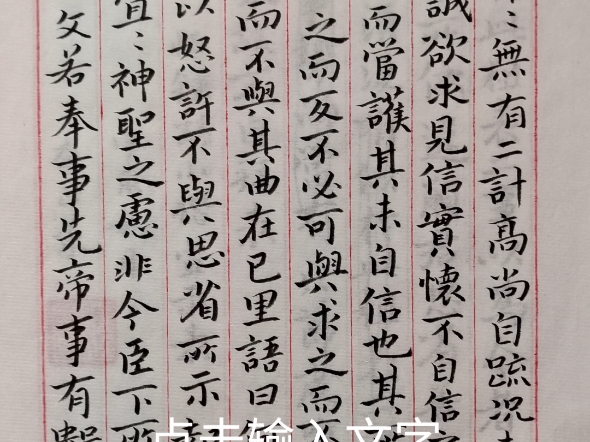 無有二計高尚自疏況
誠欲求見信實懷不自信
而當護其未自信也其
之而反不必可與求之而不
而不與其曲在己里語曰
以怒許不與思省所示
宜〻神聖之慮非今臣下所
父若奉事先帝事有
点击输入文字